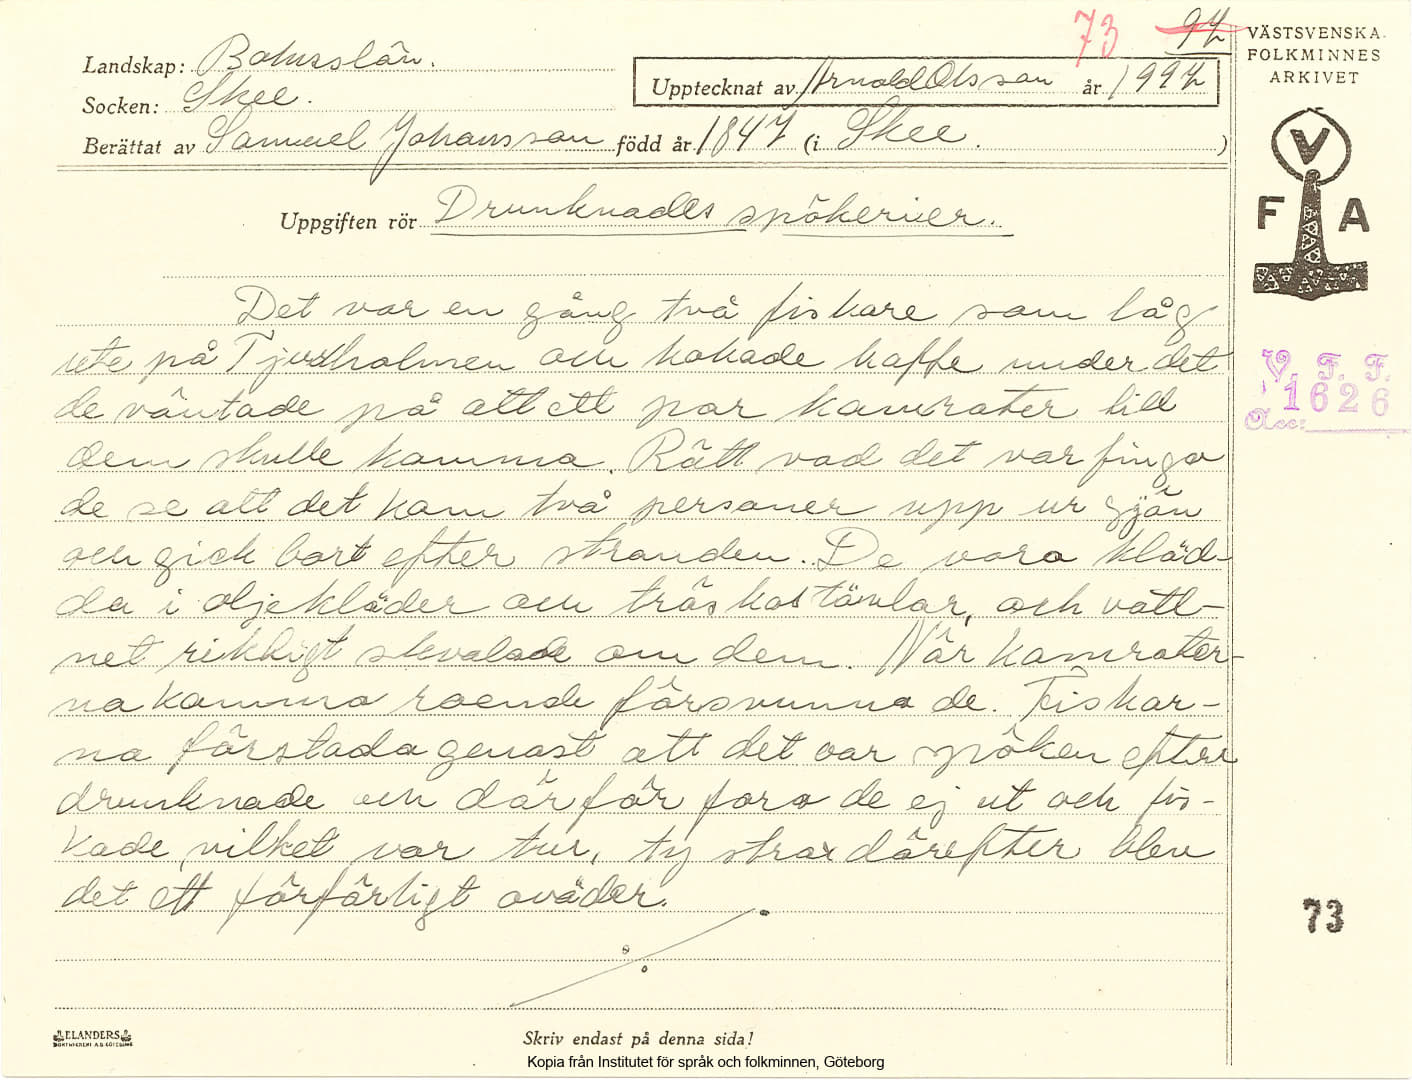 73 92
VÄSTSVENSKA
FOLKMINNES
ARKIVET
Landskap: Bohuslän.
Upptecknat av Arnold Olsson år 1927
Socken: Skee.
Berättat av Samuel Johansson född år 1847 (i Skee. )
V
F A
Uppgiften rör Drunknades spökerier.
Det var en gång två fiskare som låg
ute på Tjurholmen och kokade kaffe under det
de väntade på att ett par kamrater till
dem skulle komma. Rätt vad det var fingo
de se att det kom två personer upp ur sjön
och gick bort efter stranden. De voro kläd-
da i oljekläder och träskostövlar, och vatt-
net riktigt skvalade om dem. När kamrater-
na kommo roende försvunno de. Fiskar-
na förstodo genast att det var spöken efter
drunknade och därför foro de ej ut och fis-
kade, vilket var tur, ty strax därefter blev
det ett förfärligt oväder.
V. F. F.
1626
Acc:
73
ELANDERS
Skriv endast på denna sida!
Kopia från Institutet för språk och folkminnen, Göteborg